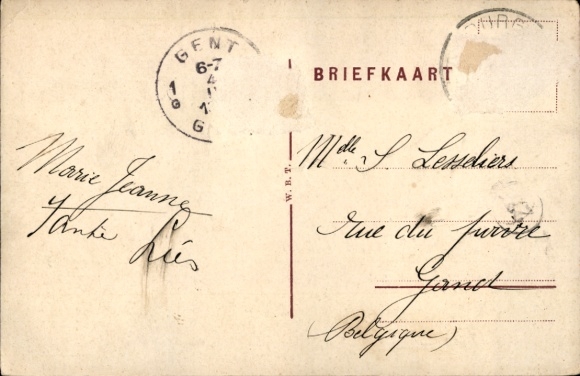 GENT
6-7
BRIEFKAART
W. B. T.
Marie Jeanne
Tante Liês
Mdlle S Lesseliers
Rue du
Gand
(Belgique)